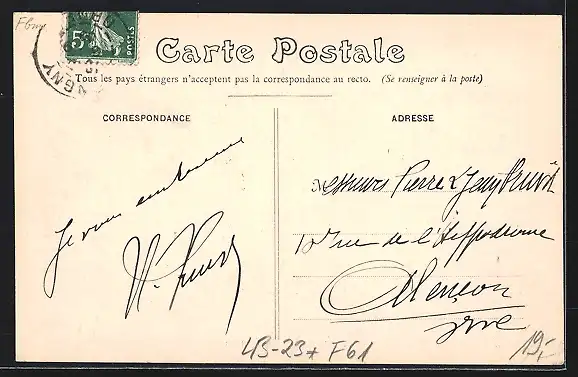 Fbnry
5
POSTES
GNY
Carte Postale
Tous les pays étrangers n'acceptent pas la correspondance au recto. (Se renseigner à la poste)
CORRESPONDANCE
ADRESSE
Je vous embrasse
Messieurs Pierre & Jean
10 rue de l'Hippodrome
Alençon
Orne
43-23+ F61
19,-